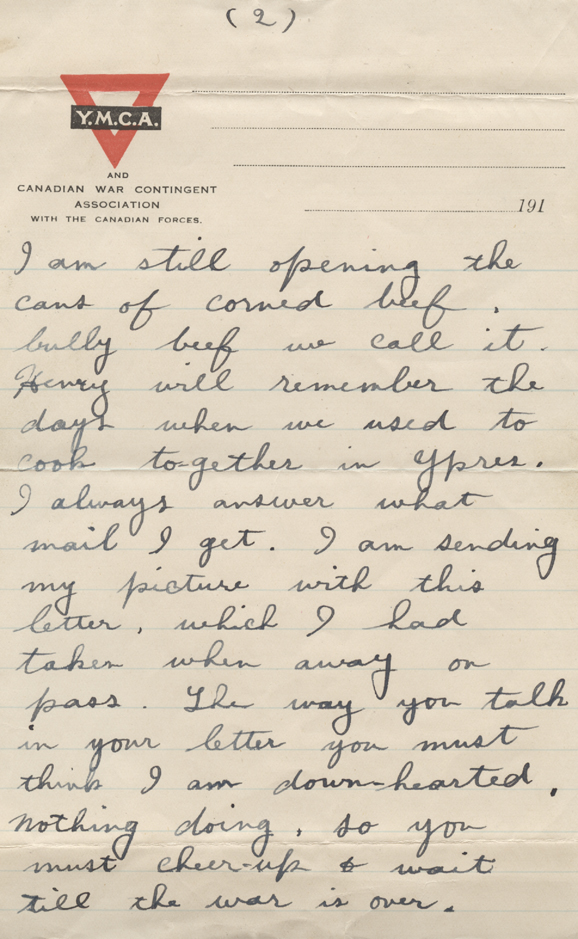 (2)
Y.M.C.A.
AND
CANADIAN WAR CONTINGENT
ASSOCIATION
WITH THE CANADIAN FORCES.
191
I am still opening the
cans of corned beef,
bully beef we call it.
Henry will remember the
days when we used to
cook to-gether in Ypres.
I always answer what
mail I get. I am sending
my picture with this
letter, which I had
taken when away on
pass. The way you talk
in your letter you must
think I am down-hearted,
nothing doing, so you
must cheer-up & wait
till the war is over.